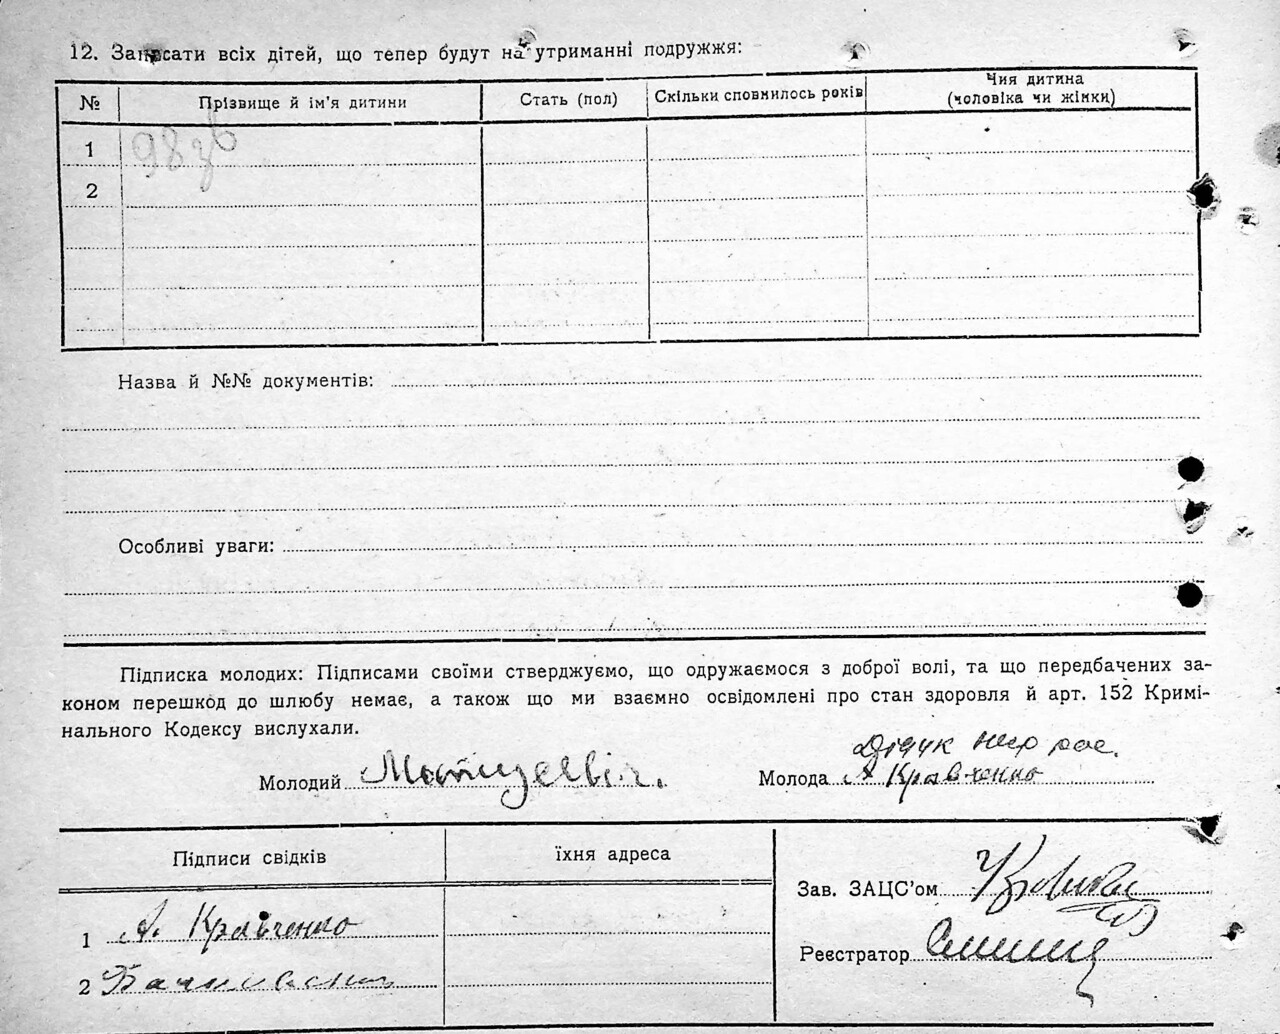 12. Записати всіх дітей, що тепер будут на утриманні подружжя:
№ Прізвище й ім'я дитини Стать (пол) Скільки сповнилось років Чия дитина (чоловіка чи жінки)
1
2
Назва й №№ документів:
Особливі уваги:
Підписка молодих: Підписами своїми стверджуємо, що одружаємося з доброї волі, та що передбачених за-
коном перешкод до шлюбу немає, а також що ми взаємно освідомлені про стан здоровля й арт. 152 Кримі-
нального Кодексу вислухали.
Дідук
Молодий Молода А Кравченко
Підписи свідків їхня адреса
Зав. ЗАЦС'ом
1 А. Кравченко
Реєстратор
2